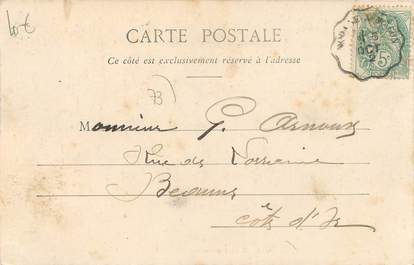 10€
CARTE POSTALE
Ce côté est exclusivement réservé à l'adresse
73)
Monsieur P. Arnoux
Rue de Lorraine
Beaune
Côte d'Or
5
OCT
2